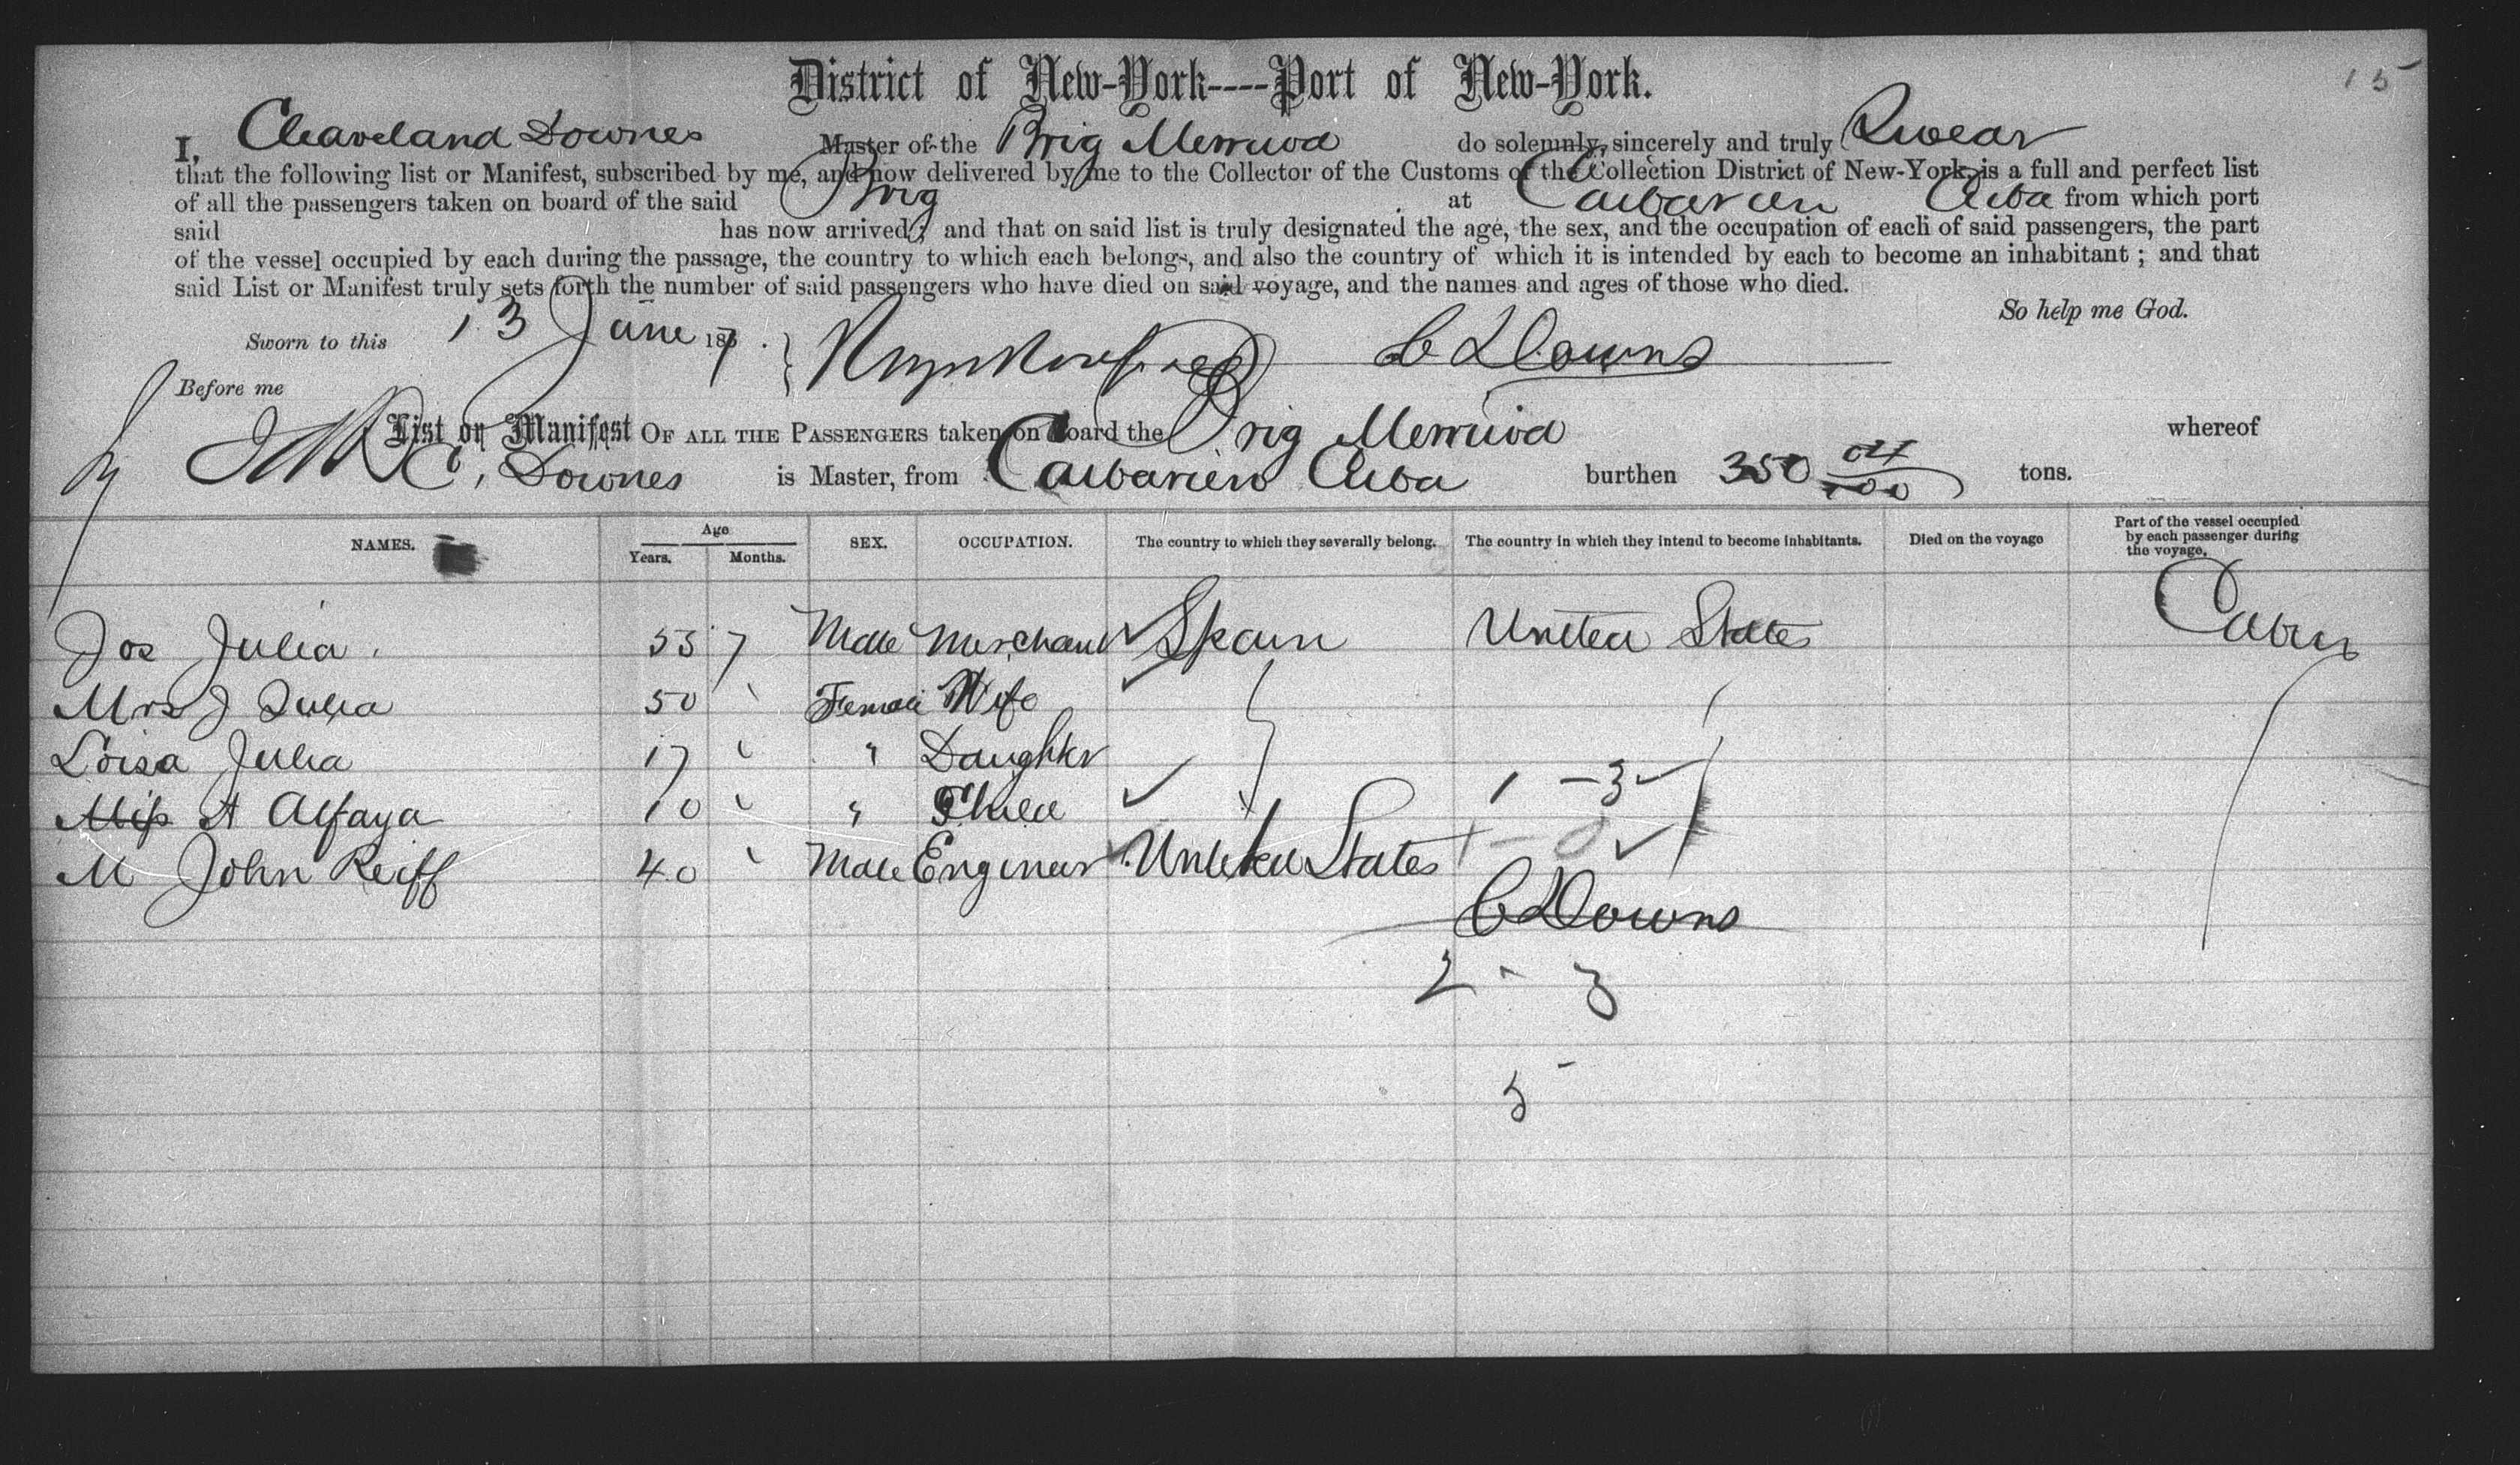 15
District of New-York----Port of New-York.
I, Cleaveland Downes Master of the Brig Merriwa do solemnly, sincerely and truly Swear
that the following list or Manifest, subscribed by me, and now delivered by me to the Collector of the Customs of the Collection District of New-York, is a full and perfect list
of all the passengers taken on board of the said Brig at Caibarien Cuba from which port
said has now arrived; and that on said list is truly designated the age, the sex, and the occupation of each of said passengers, the part
of the vessel occupied by each during the passage, the country to which each belongs, and also the country of which it is intended by each to become an inhabitant; and that
said List or Manifest truly sets forth the number of said passengers who have died on said voyage, and the names and ages of those who died.
So help me God.
Sworn to this 13 June 187 C Downs
Before me
List or Manifest OF ALL THE PASSENGERS taken on board the Brig Merriwa whereof
C. Downes is Master, from Caibarien Cuba burthen 350 04/100 tons.
NAMES. Age Years. Months. SEX. OCCUPATION. The country to which they severally belong. The country in which they intend to become inhabitants. Died on the voyage Part of the vessel occupied by each passenger during the voyage.
Jos Julia 55 7 Male Merchant Spain United States Cabin
Mrs J Julia 50 " Female Wife
Loisa Julia 17 " " Daughter
Miss A Alfaya 10 " " Child 1 - 3
M John Reiff 40 " Male Engineer United States 1 - 0
C Downs
2 - 3
5